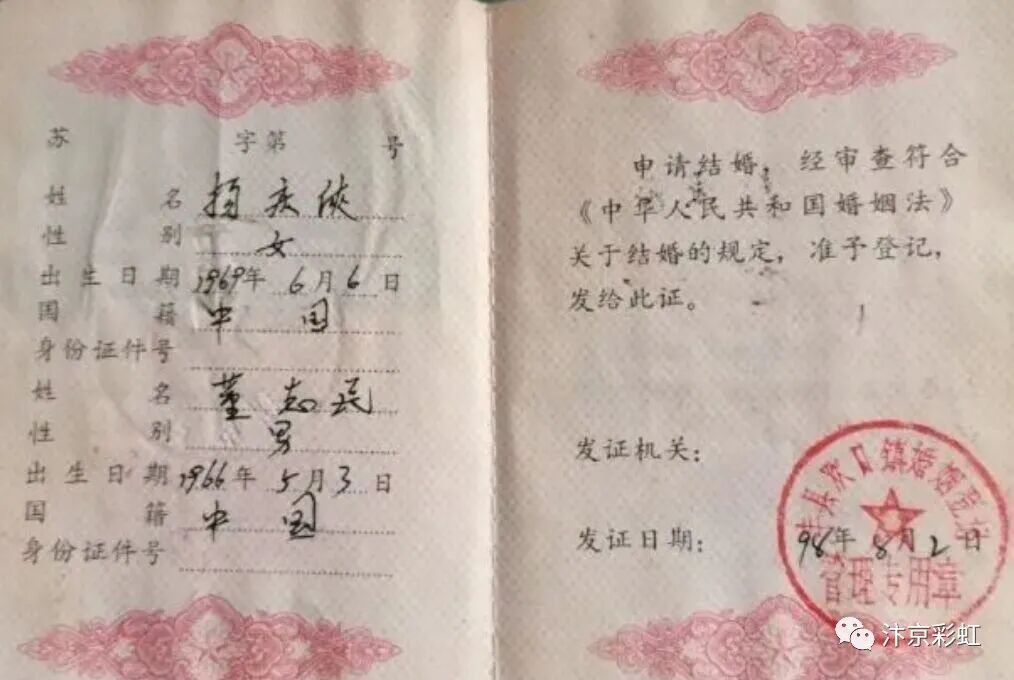 苏 字第 号
姓名 杨庆侠
性别 女
出生日期 1969年6月6日
国籍 中国
身份证件号
姓名 董志民
性别 男
出生日期 1966年5月3日
国籍 中国
身份证件号
申请结婚，经审查符合
《中华人民共和国婚姻法》
关于结婚的规定，准予登记，
发给此证。
发证机关：
发证日期：98年8月2日
县欢口镇婚姻登记
管理专用章
汴京彩虹